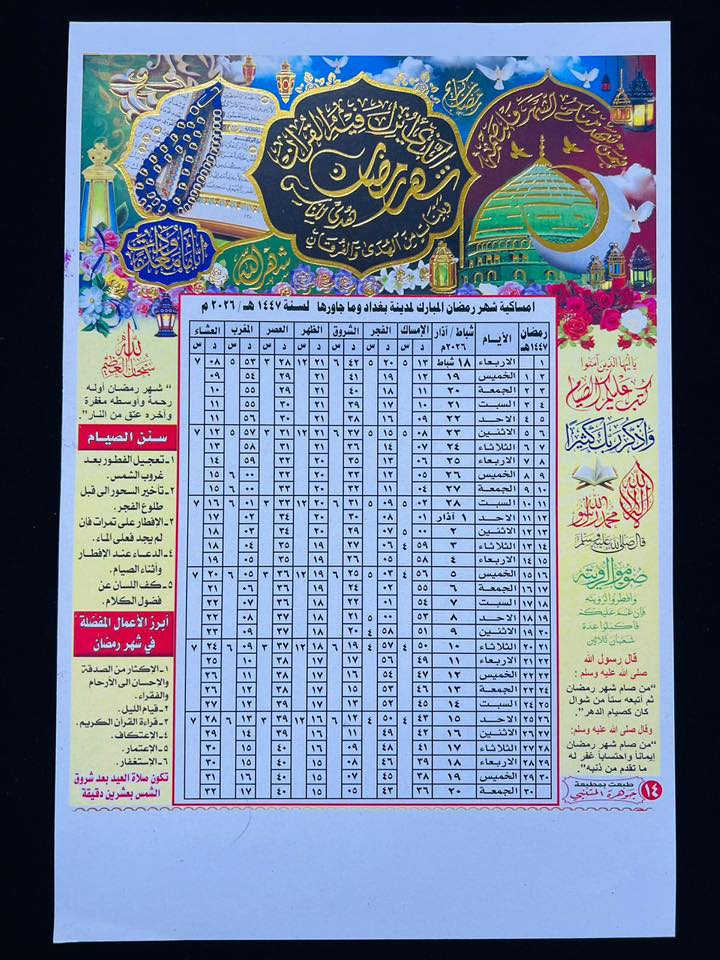 الذي أنزل فيه القرآن
شهر رمضان
هدى للناس
وبينات من الهدى والفرقان
رمضان كريم
شهر الله
امساكية شهر رمضان المبارك لمدينة بغداد وما جاورها لسنة ١٤٤٧ هـ / ٢٠٢٦ م
رمضان ١٤٤٧هـ الايـام شباط / آذار ٢٠٢٦م الإمساك الفجر الشروق الظهر العصر المغرب العشاء
د س د س د س د س د س د س د س
١ الاربعاء ١٨ شباط ١٣ ٥ ٢٠ ٥ ٤٢ ٦ ٢١ ١٢ ٢٨ ٣ ٥٣ ٥ ٠٨ ٧
٢ ١ الخميس ١٩ ١٢ ١٩ ٤١ ٢١ ٢٩ ٥٤ ٠٩
٣ ٢ الجمعة ٢٠ ١١ ١٨ ٤٠ ٢١ ٢٩ ٥٥ ١٠
٤ ٣ السبت ٢١ ١٠ ١٧ ٣٩ ٢١ ٣٠ ٥٥ ١٠
٥ ٤ الاحد ٢٢ ٠٩ ١٦ ٣٨ ٢١ ٣٠ ٥٦ ١١
٦ ٥ الاثنين ٢٣ ٠٨ ٥ ١٥ ٥ ٣٧ ٦ ٢١ ١٢ ٣١ ٣ ٥٧ ٥ ١٢ ٧
٧ ٦ الثلاثاء ٢٤ ٠٧ ١٤ ٣٦ ٢٠ ٣٢ ٥٨ ١٣
٨ ٧ الاربعاء ٢٥ ٠٦ ١٣ ٣٥ ٢٠ ٣٢ ٥٩ ١٤
٩ ٨ الخميس ٢٦ ٠٥ ١٢ ٣٣ ٢٠ ٣٢ ٠٠ ٦ ١٥
١٠ ٩ الجمعة ٢٧ ٠٤ ١١ ٣٢ ٢٠ ٣٣ ٠٠ ٦ ١٥
١١ ١٠ السبت ٢٨ ٠٢ ٥ ٠٩ ٥ ٣١ ٦ ٢٠ ١٢ ٣٣ ٣ ٠١ ٦ ١٦ ٧
١٢ ١١ الاحد ١ آذار ٠١ ٠٨ ٣٠ ٢٠ ٣٤ ٠٢ ١٧
١٣ ١٢ الاثنين ٢ ٠٠ ٥ ٠٧ ٢٩ ٢٠ ٣٤ ٠٣ ١٨
١٤ ١٣ الثلاثاء ٣ ٥٩ ٤ ٠٦ ٢٧ ١٩ ٣٥ ٠٤ ١٨
١٥ ١٤ الاربعاء ٤ ٥٨ ٠٥ ٢٦ ١٩ ٣٥ ٠٤ ١٩
١٦ ١٥ الخميس ٥ ٥٦ ٤ ٠٣ ٥ ٢٥ ٦ ١٩ ١٢ ٣٦ ٣ ٠٥ ٦ ٢٠ ٧
١٧ ١٦ الجمعة ٦ ٥٥ ٠٢ ٢٤ ١٩ ٣٦ ٠٦ ٢١
١٨ ١٧ السبت ٧ ٥٤ ٠١ ٢٢ ١٨ ٣٦ ٠٧ ٢٢
١٩ ١٨ الاحد ٨ ٥٣ ٠٠ ٥ ٢١ ١٨ ٣٧ ٠٨
٢٠ ١٩ الاثنين ٩ ٥١ ٥٨ ٤ ٢٠ ١٨ ٣٧ ٠٨ ٢٣
٢١ ٢٠ الثلاثاء ١٠ ٥٠ ٤ ٥٧ ٤ ١٩ ٦ ١٨ ١٢ ٣٧ ٣ ٠٩ ٦ ٢٤ ٧
٢٢ ٢١ الاربعاء ١١ ٤٩ ٥٦ ١٧ ١٨ ٣٨ ١٠ ٢٥
٢٣ ٢٢ الخميس ١٢ ٤٧ ٥٤ ١٦ ١٧ ٣٨ ١١ ٢٦
٢٤ ٢٣ الجمعة ١٣ ٤٦ ٥٣ ١٥ ١٧ ٣٨ ١١ ٢٦
٢٥ ٢٤ السبت ١٤ ٤٥ ٥٢ ١٧ ٣٩ ١٢ ٢٧
٢٦ ٢٥ الاحد ١٥ ٤٣ ٤ ٥٠ ٤ ١٢ ٦ ١٦ ١٢ ٣٩ ٣ ١٣ ٦ ٢٨ ٧
٢٧ ٢٦ الاثنين ١٦ ٤٢ ٤٩ ١١ ١٦ ٣٩ ١٤ ٢٩
٢٨ ٢٧ الثلاثاء ١٧ ٤١ ٤٨ ١٦ ٤٠ ١٥ ٣٠
٢٩ ٢٨ الاربعاء ١٨ ٣٩ ٠٨ ١٥ ٤٠ ١٥ ٣٠
٣٠ ٢٩ الخميس ١٩ ٣٨ ١٥ ٤٠ ١٦ ٣١
٣٠ الجمعة ٢٠ ٣٦ ٤٣ ٠٥ ١٥ ٤٠ ١٧ ٣٢
يا أيها الذين آمنوا
كتب عليكم الصيام
واذكر ربك كثيرا
لا إله إلا الله
محمد رسول الله
قال صلى الله عليه وسلم
صوموا لرؤيته
وأفطروا لرؤيته
فإن غم عليكم
فأكملوا عدة
شعبان ثلاثين
قال رسول الله
صلى الله عليه وسلم :
"من صام شهر رمضان
ثم أتبعه ستاً من شوال
كان كصيام الدهر".
وقال صلى الله عليه وسلم:
"من صام شهر رمضان
إيماناً واحتساباً غفر له
ما تقدم من ذنبه".
١٤
طبعت بمطبعة
جوهرة المتنبي
" شهر رمضان أوله
رحمة وأوسطه مغفرة
وآخره عتق من النار".
سنن الصيــام
١- تعجيل الفطور بعد
غروب الشمس.
٢- تأخير السحور الى قبل
طلوع الفجر.
٣- الإفطار على تمرات فأن
لم يجد فعلى الماء.
٤- الدعــاء عند الإفطار
وأثناء الصيام.
٥- كـف اللسان عن
فضول الكلام.
أبرز الأعمال المفضلة
في شهر رمضان
١- الاكثار من الصدقة
والإحسان الى الأرحام
والفقراء.
٢- قيام الليل.
٣- قراءة القرآن الكريم.
٤- الاعتكاف.
٥- الإعتمار.
٦- الإستغفار.
تكون صلاة العيد بعد شروق
الشمس بعشرين دقيقة